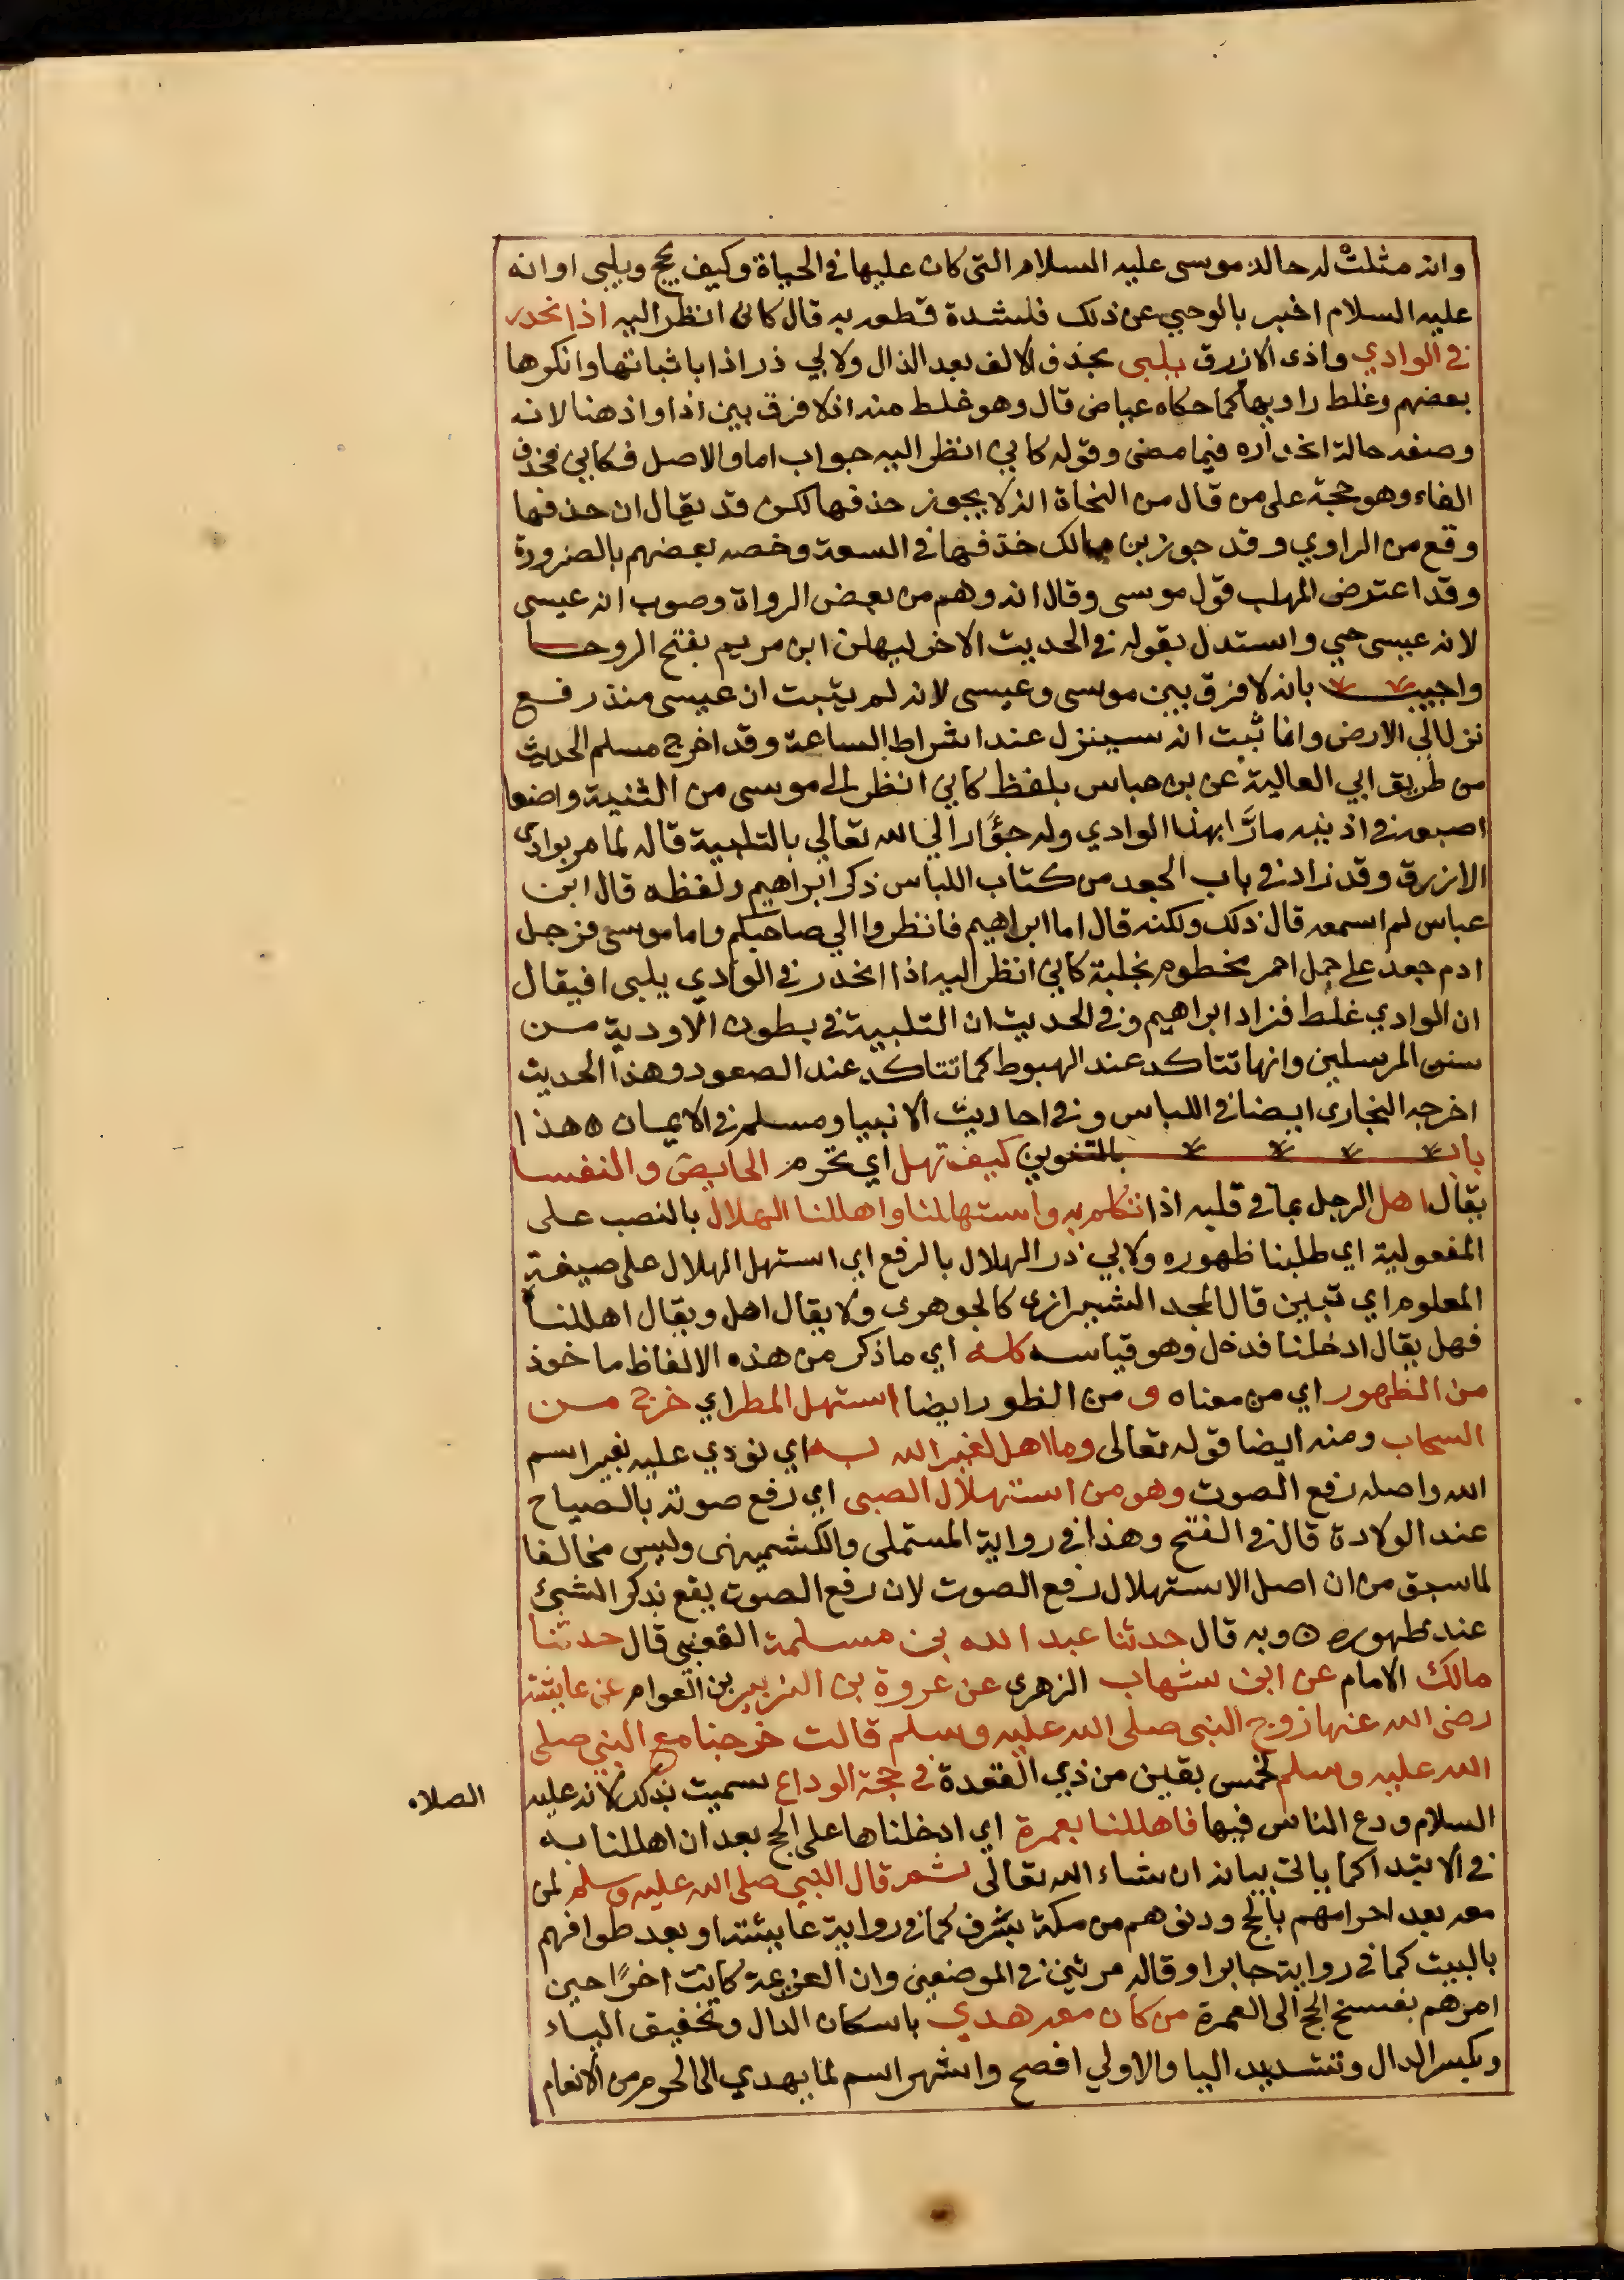 وانه مثلت له حاله موسى عليه السلام التى كان عليها في الحياة وكيف يحج ويلبى او انه
عليه السلام اخبر بالوحي عن ذلك فلشدة قطعه به قال كانى انظر اليه اذا نحدر
في الوادي واذى الازرق يلبى بحذف الالف بعد الذال ولابي ذر اذا باثباتها وانكرها
بعضهم وغلط راويها كما حكاه عياض قال وهو غلط منه اذ لا فرق بين اذا واذ هنا لانه
وصفه حالة انحداره فيما مضى وقوله كاني انظر اليه جواب اما والاصل فكاني فحذف
الفاء وهو حجة على من قال من النحاة انه لا يجوز حذفها لكن قد يقال ان حذفها
وقع من الراوي وقد جوز بن مالك حذفها في السعة وخصه بعضهم بالضرورة
وقد اعترض المهلب قول موسى وقال انه وهم من بعض الرواة وصوب انه عيسى
لانه عيسى حي واستدل بقوله في الحديث الاخر ليهلن ابن مريم بفتح الروحا
واجيب بانه لا فرق بين موسى وعيسى لانه لم يثبت ان عيسى منذ رفع
نزل الي الارض وانما ثبت انه سينزل عند اشراط الساعة وقد اخرج مسلم الحديث
من طريق ابي العالية عن بن عباس بلفظ كاني انظر الى موسى من الثنية واضعا
اصبعه في اذنيه مارّا بهذا الوادي وله جؤار الي الله تعالي بالتلبية قاله لما مر بوادى
الازرق وقد زاد في باب الجعد من كتاب اللباس ذكر ابراهيم ولفظه قال ابن
عباس لم اسمعه قال ذلك ولكنه قال اما ابراهيم فانظروا الي صاحبكم واما موسى فرجل
ادم جعد على جمل احمر مخطوم بخلبة كاني انظر اليه اذا انحدر في الوادي يلبى افيقال
ان الوادي غلط فزاد ابراهيم وفي الحديث ان التلبية في بطون الاودية من
سنن المرسلين وانها تتاكد عند الهبوط كما تتاكد عند الصعود وهذا الحديث
اخرجه البخارى ايضا في اللباس وفي احاديث الانبيا ومسلم في الايمان ه هذا
باب بالتنوين كيف تهل اي تحرم الحايض والنفسا
يقال اهل الرجل بما في قلبه اذا تكلم به واستهللنا واهللنا الهلال بالنصب على
المفعولية اي طلبنا ظهوره ولابي ذر الهلال بالرفع اي استهل الهلال على صيغة
المعلوم اي تبين قال المجد الشيرازى كالجوهرى ولا يقال اهل ويقال اهللنا
فهل يقال ادخلنا فدخل وهو قياسه كله اي ما ذكر من هذه الالفاظ ماخوذ
من الظهور اي من معناه و من الظهور ايضا استهل المطر اي خرج من
السحاب ومنه ايضا قوله تعالى وما اهل لغير الله به اي نودي عليه بغير اسم
الله واصله رفع الصوت وهو من استهلال الصبى اي رفع صوته بالصياح
عند الولادة قاله في الفتح وهذا في رواية المستملى والكشميهنى وليس مخالفا
لما سبق من ان اصل الاستهلال رفع الصوت لان رفع الصوت يقع بذكر الشيئ
عند ظهوره ه وبه قال حدثنا عبد الله بن مسلمة القعنبي قال حدثنا
مالك الامام عن ابن شهاب الزهرى عن عروة بن الزبير بن العوام عن عايشة
رضى الله عنها زوج النبى صلى الله عليه وسلم قالت خرجنا مع النبي صلى
الله عليه وسلم لخمس بقين من ذي القعدة في حجة الوداع سميت بذلك لانه عليه
الصلاه
السلام ودع الناس فيها فاهللنا بعمرة اي ادخلناها على الحج بعد ان اهللنا به
في الابتدا كما ياتى بيانه ان شاء الله تعالى ثم قال النبي صلى الله عليه وسلم لمن
معه بعد احرامهم بالحج ودنوهم من مكة بشرف كما في رواية عايشة او بعد طوافهم
بالبيت كما في رواية جابر او قاله مرتين في الموضعين وان العزيمة كانت اخرًا حين
امرهم بفسخ الحج الى العمرة من كان معه هدي باسكان الدال وتخفيف الياء
وبكسر الدال وتشديد اليا والاولي افصح واشهر اسم لما يهدي الى الحرم من الانعام